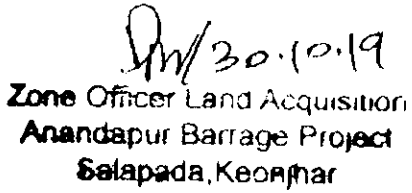 30.10.19
Zone Officer Land Acquisition
Anandapur Barrage Project
Salapada, Keonjhar